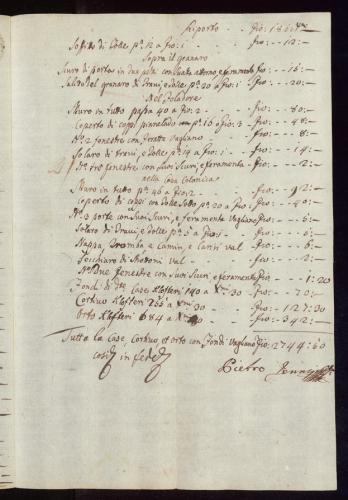 Riporto - - fio: 1861:
Soffito di Tolle p:° 12 a fio: 1 - - fio: - 12:-
Sopra il granaro
Scuro di portes in due parti con ferata atorno e feramenta fio: - 16:-
Salido del granaro di travi, e Tolle p:° 20 a fio: 1 - fio: - 20:-
Nel Foladore
Muro in tutto p 40 a fio: 2 - - - fio: - 80:-
Coperto di coppi p:° 16 a fio: 3 - fio: - 48:-
N:° 2 fenestre con feratte Vagliano - - fio: - 8:-
Solaro di travi, e Tolle p:° 14 a fio: 1 - fio: - 14:-
N:° tre fenestre con suoi Scuri, e feramenta - fio: - 2:-
nella Casa Colonica
Muro in tutto p:° 46 a fio: 2 - - fio: - 92:-
Coperto di coppi con Tolle Sotto p:° 20 a fio: - fio: - 40:-
N:° 3 porte con Suoi Scuri, e feramenta Vagliano fio: - 6:-
Solaro di Travi, e Tolle p:° 5 a fio: 1 - fio: - 5:-
Nappa Tromba e Camin, e val fio: - 6:-
Secchiaro di Mattoni val - - fio: - 2:-
N:° Due fenestre con Suoi Scuri, e feramenta fio: - 1:20
Fondi di Klafteri 140 a Xni 30 - fio: - 70:-
Cortivo Klafteri 255 a Xni 30 - - fio: - 127:30
Orto Klafteri 684 a Xni 30 - - fio: - 342:-
Tutta la Case, Cortivo, et orto con Fondi Vagliano fio: 2744:50
così in fede
Pietro